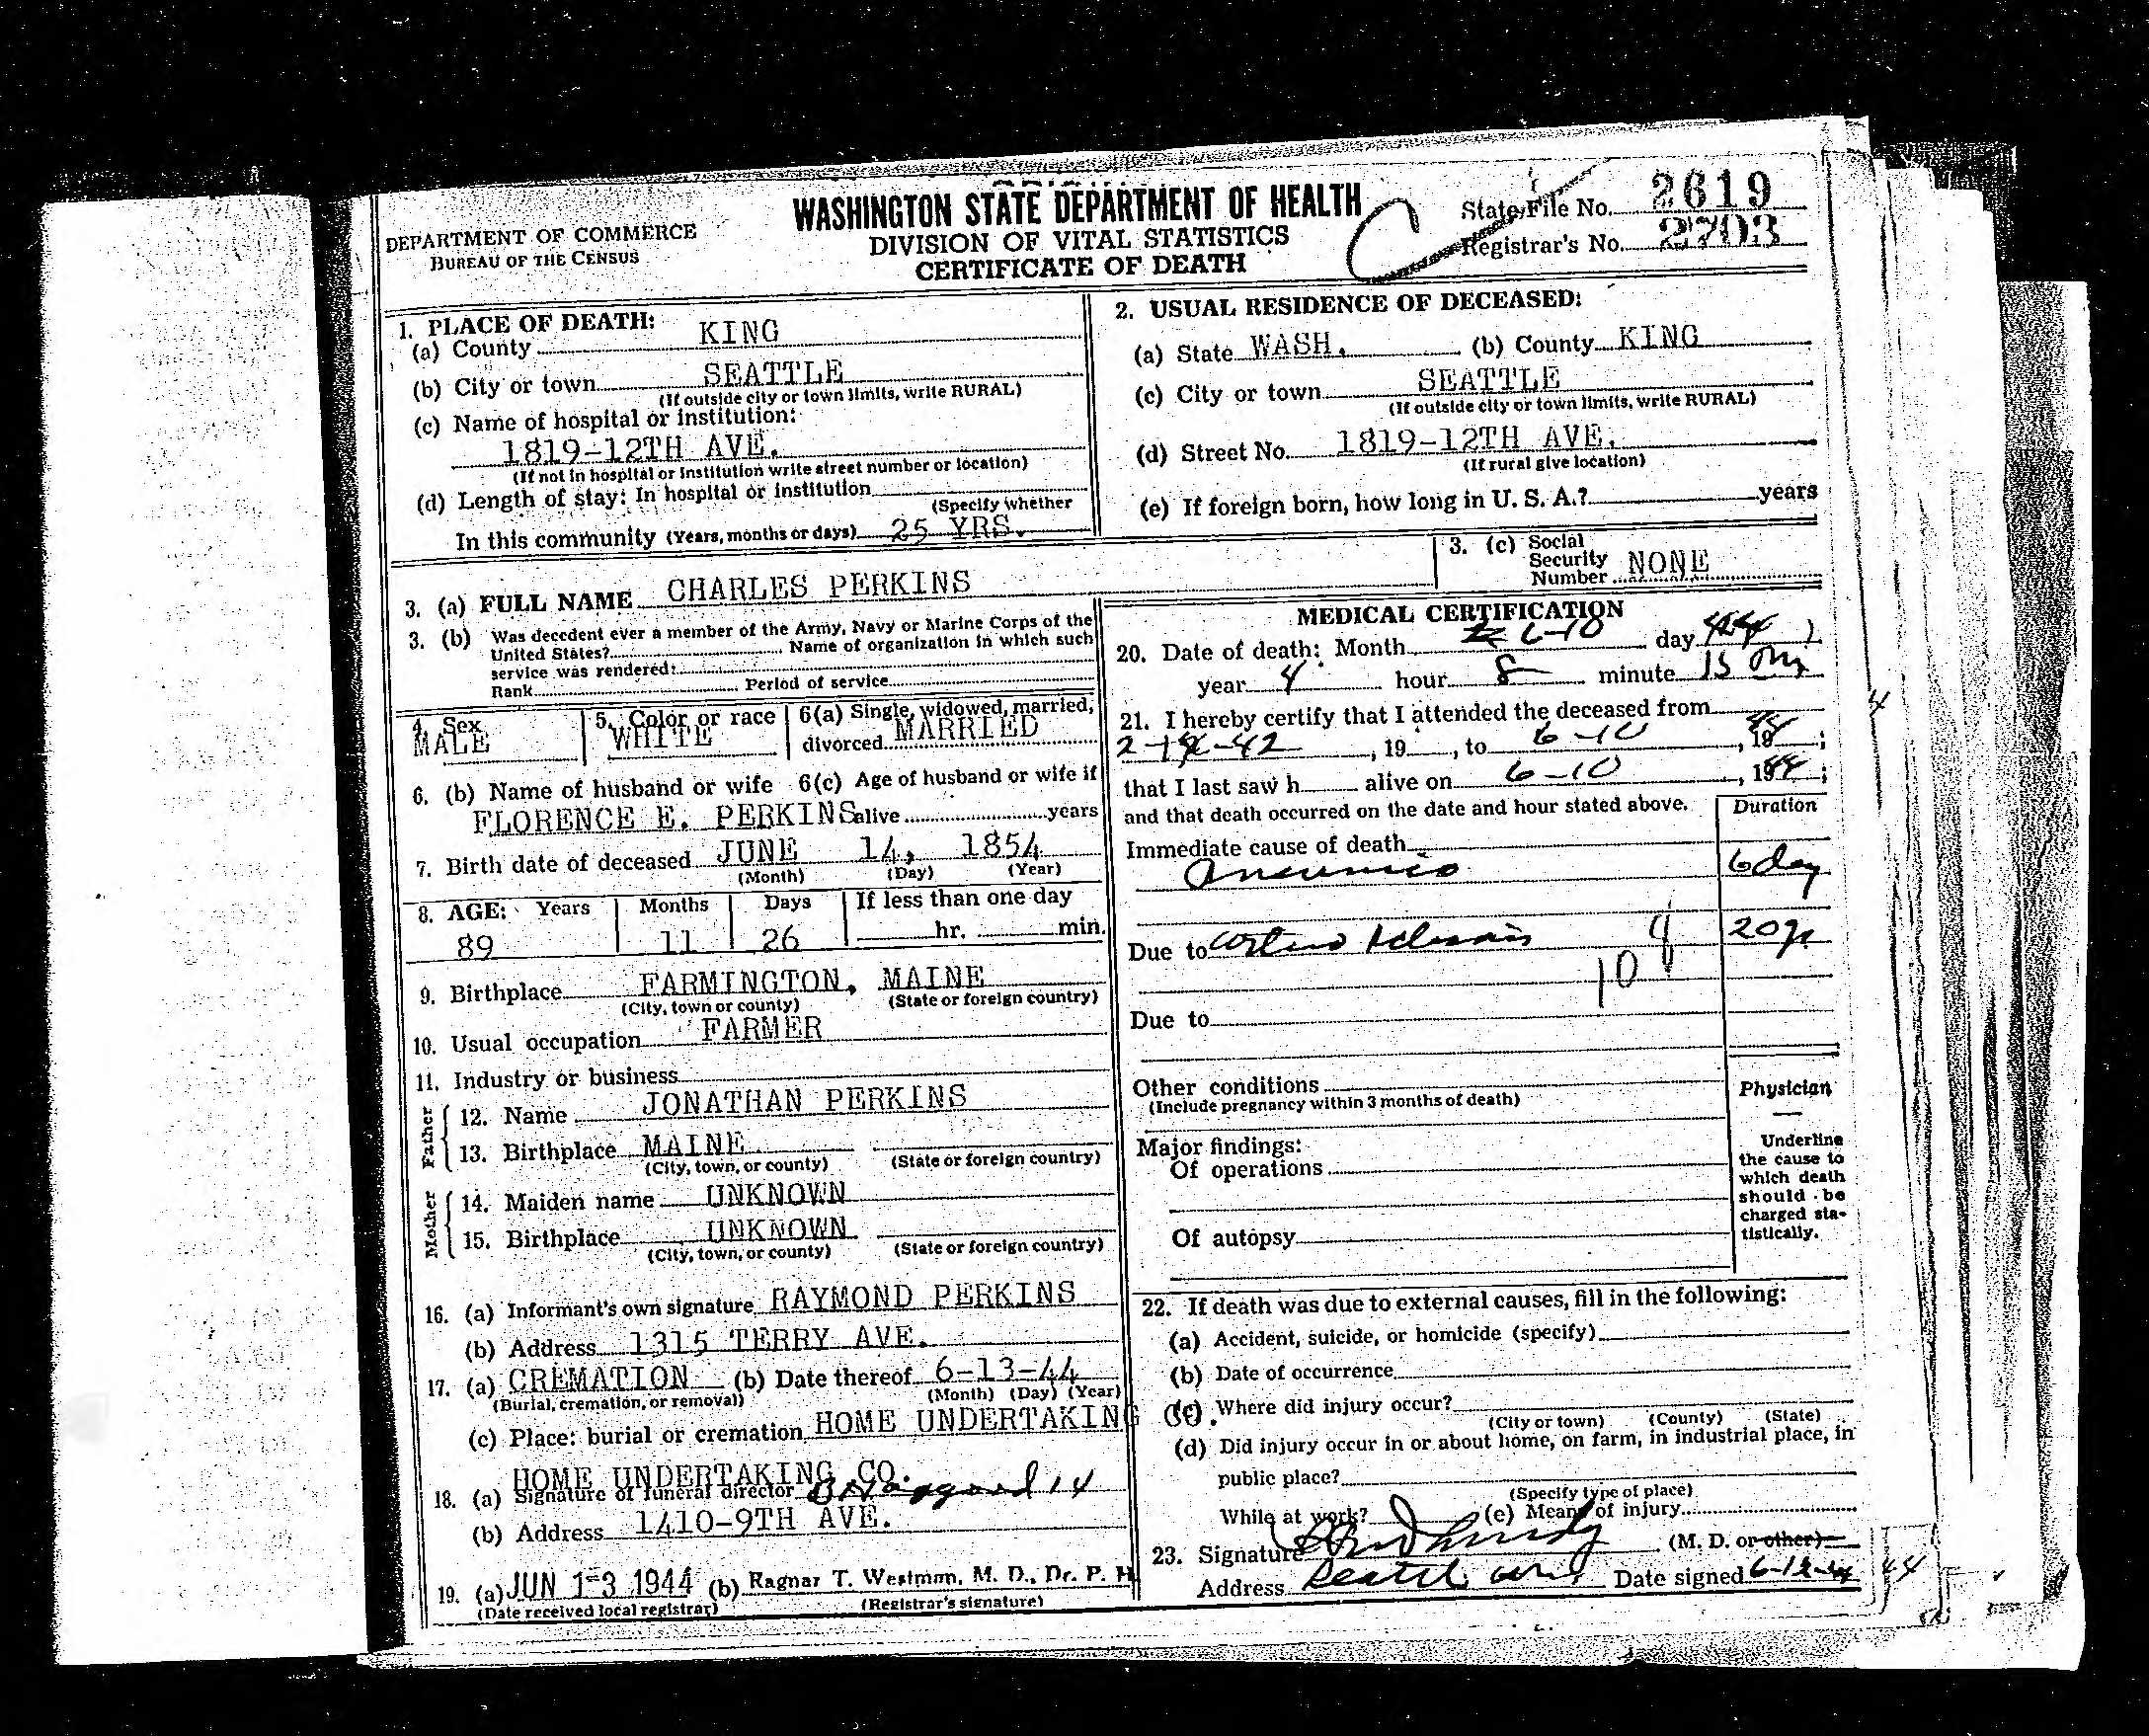 WASHINGTON STATE DEPARTMENT OF HEALTH
DIVISION OF VITAL STATISTICS
CERTIFICATE OF DEATH
DEPARTMENT OF COMMERCE
BUREAU OF THE CENSUS
State File No. 2619
Registrar's No. 2703
1. PLACE OF DEATH:
(a) County KING
(b) City or town SEATTLE
(If outside city or town limits, write RURAL)
(c) Name of hospital or institution:
1819-12TH AVE.
(If not in hospital or institution write street number or location)
(d) Length of stay: In hospital or institution
(Specify whether
In this community (Years, months or days) 25 YRS.
2. USUAL RESIDENCE OF DECEASED:
(a) State WASH. (b) County KING
(c) City or town SEATTLE
(If outside city or town limits, write RURAL)
(d) Street No. 1819-12TH AVE.
(If rural give location)
(e) If foreign born, how long in U. S. A.? years
3. (a) FULL NAME CHARLES PERKINS
3. (c) Social
Security
Number NONE
3. (b) Was decedent ever a member of the Army, Navy or Marine Corps of the
United States? Name of organization in which such
service was rendered:
Rank Period of service
4. Sex
MALE
5. Color or race
WHITE
6(a) Single, widowed, married,
divorced MARRIED
6. (b) Name of husband or wife 6(c) Age of husband or wife if
FLORENCE E. PERKINS alive years
7. Birth date of deceased JUNE 14, 1854
(Month) (Day) (Year)
8. AGE: Years Months Days If less than one day
89 11 26 hr. min.
9. Birthplace FARMINGTON, MAINE
(City, town or county) (State or foreign country)
10. Usual occupation FARMER
11. Industry or business
Father
12. Name JONATHAN PERKINS
13. Birthplace MAINE
(City, town, or county) (State or foreign country)
Mother
14. Maiden name UNKNOWN
15. Birthplace UNKNOWN
(City, town, or county) (State or foreign country)
16. (a) Informant's own signature RAYMOND PERKINS
(b) Address 1315 TERRY AVE.
17. (a) CREMATION (b) Date thereof 6-13-44
(Burial, cremation, or removal) (Month) (Day) (Year)
(c) Place: burial or cremation HOME UNDERTAKING CO.
HOME UNDERTAKING CO.
18. (a) Signature of funeral director 14
(b) Address 1410-9TH AVE.
19. (a) JUN 13 1944 (b) Ragnar T. Westman, M. D., Dr. P. H.
(Date received local registrar) (Registrar's signature)
MEDICAL CERTIFICATION
20. Date of death: Month 6-10 day
year 4 hour 8 minute 15
21. I hereby certify that I attended the deceased from
, 19 , to 6-10 , 1944;
that I last saw h alive on 6-10 , 1944;
and that death occurred on the date and hour stated above.
Duration
Immediate cause of death
6 day
Due to
20 y
108
Due to
Other conditions
(Include pregnancy within 3 months of death)
Physician
Major findings:
Of operations
Of autopsy
Underline
the cause to
which death
should be
charged sta-
tistically.
22. If death was due to external causes, fill in the following:
(a) Accident, suicide, or homicide (specify)
(b) Date of occurrence
(c) Where did injury occur?
(City or town) (County) (State)
(d) Did injury occur in or about home, on farm, in industrial place, in
public place?
(Specify type of place)
While at work? (e) Means of injury
23. Signature (M. D. or other)
Address Seattle Date signed 6-12-44